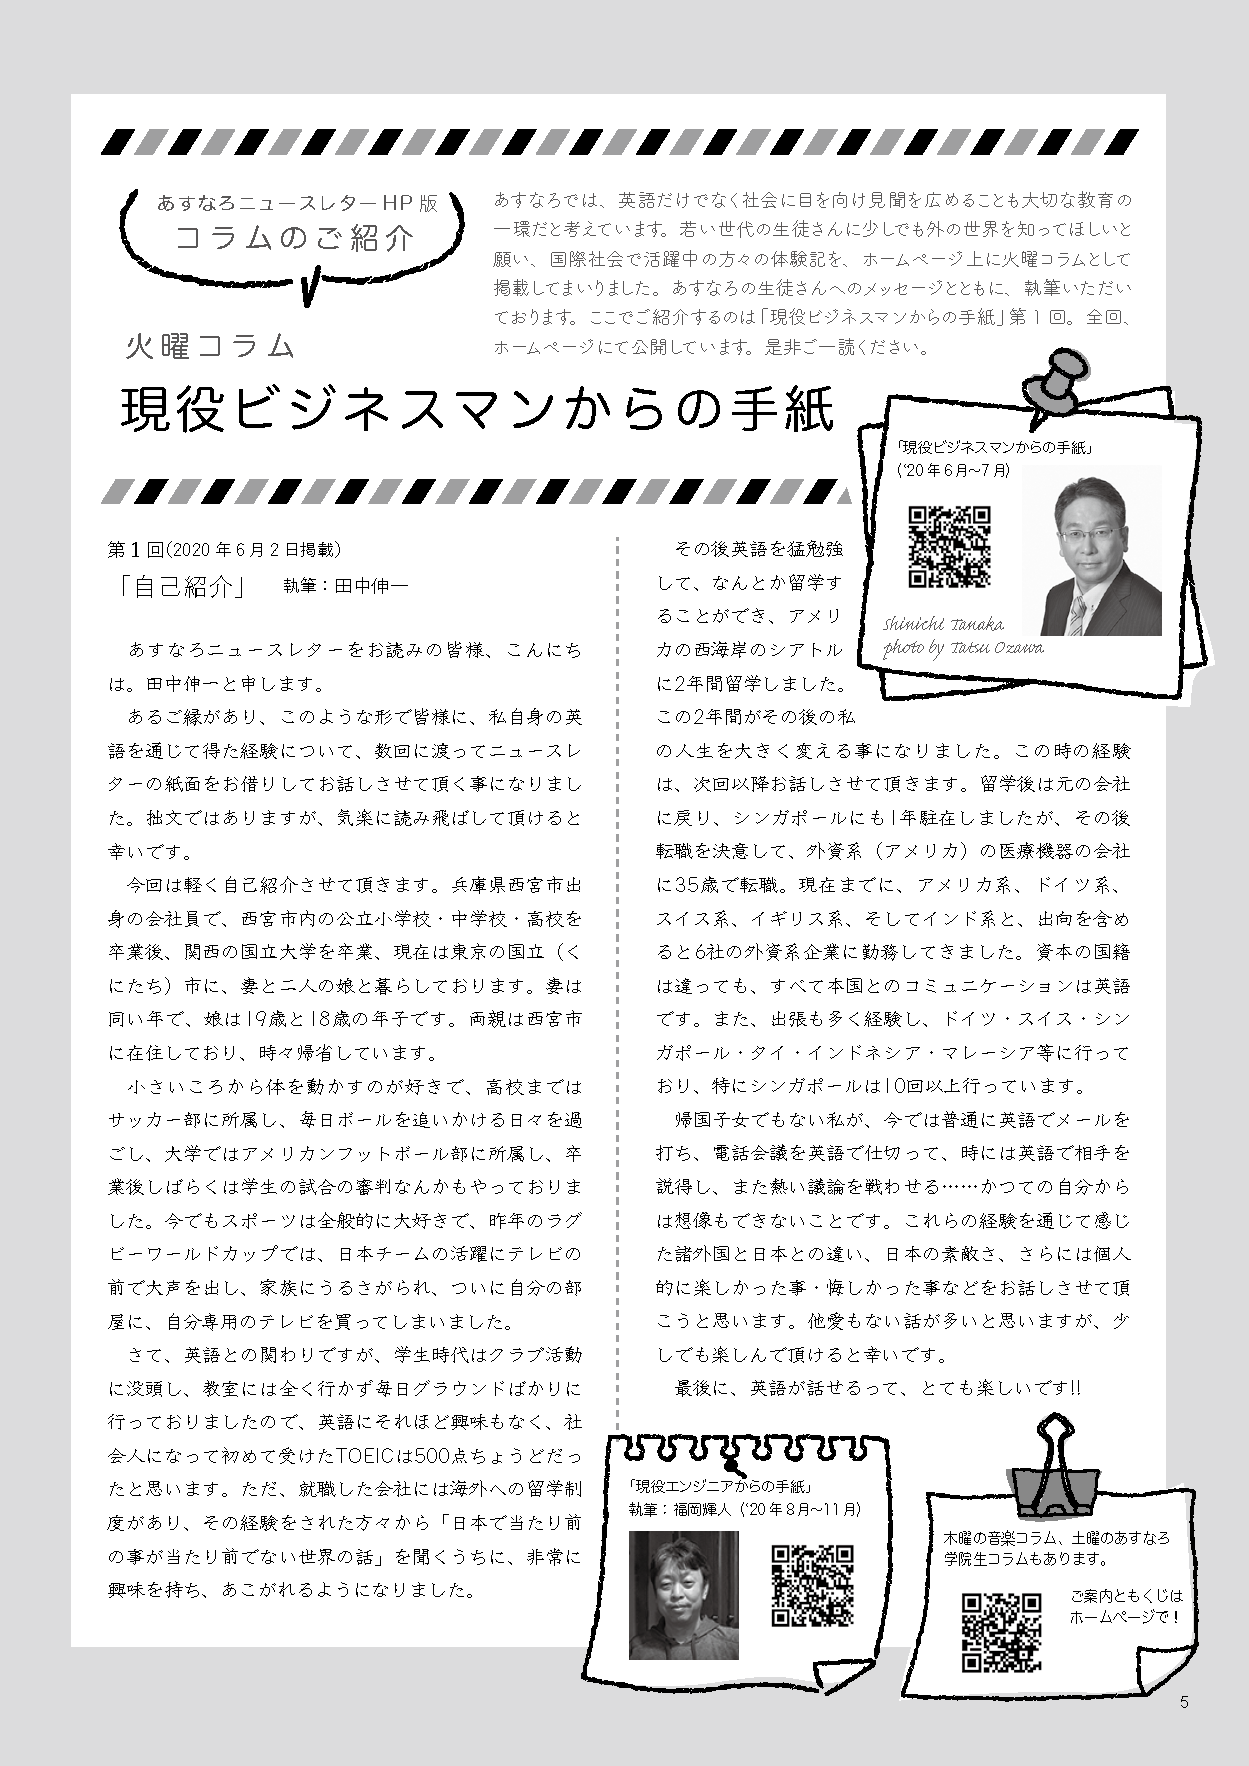 あすなろニュースレター HP 版
コラムのご紹介
あすなろでは、英語だけでなく社会に目を向け見聞を広めることも大切な教育の
一環だと考えています。若い世代の生徒さんに少しでも外の世界を知ってほしいと
願い、国際社会で活躍中の方々の体験記を、ホームページ上に火曜コラムとして
掲載してまいりました。あすなろの生徒さんへのメッセージとともに、執筆いただい
ております。ここでご紹介するのは「現役ビジネスマンからの手紙」第 1 回。全回、
ホームページにて公開しています。是非ご一読ください。
火曜コラム
現役ビジネスマンからの手紙
「現役ビジネスマンからの手紙」
(‘20 年 6 月〜7 月)
Shinichi Tanaka
photo by Tatsu Ozawa
第 1 回(2020 年 6 月 2 日掲載)
「自己紹介」　執筆：田中伸一
あすなろニュースレターをお読みの皆様、こんにち
は。田中伸一と申します。
あるご縁があり、このような形で皆様に、私自身の英
語を通じて得た経験について、数回に渡ってニュースレ
ターの紙面をお借りしてお話しさせて頂く事になりまし
た。拙文ではありますが、気楽に読み飛ばして頂けると
幸いです。
今回は軽く自己紹介させて頂きます。兵庫県西宮市出
身の会社員で、西宮市内の公立小学校・中学校・高校を
卒業後、関西の国立大学を卒業、現在は東京の国立（く
にたち）市に、妻と二人の娘と暮らしております。妻は
同い年で、娘は19歳と18歳の年子です。両親は西宮市
に在住しており、時々帰省しています。
小さいころから体を動かすのが好きで、高校までは
サッカー部に所属し、毎日ボールを追いかける日々を過
ごし、大学ではアメリカンフットボール部に所属し、卒
業後しばらくは学生の試合の審判なんかもやっておりま
した。今でもスポーツは全般的に大好きで、昨年のラグ
ビーワールドカップでは、日本チームの活躍にテレビの
前で大声を出し、家族にうるさがられ、ついに自分の部
屋に、自分専用のテレビを買ってしまいました。
さて、英語との関わりですが、学生時代はクラブ活動
に没頭し、教室には全く行かず毎日グラウンドばかりに
行っておりましたので、英語にそれほど興味もなく、社
会人になって初めて受けたTOEICは500点ちょうどだっ
たと思います。ただ、就職した会社には海外への留学制
度があり、その経験をされた方々から「日本で当たり前
の事が当たり前でない世界の話」を聞くうちに、非常に
興味を持ち、あこがれるようになりました。
その後英語を猛勉強
して、なんとか留学す
ることができ、アメリ
カの西海岸のシアトル
に2年間留学しました。
この2年間がその後の私
の人生を大きく変える事になりました。この時の経験
は、次回以降お話しさせて頂きます。留学後は元の会社
に戻り、シンガポールにも1年駐在しましたが、その後
転職を決意して、外資系（アメリカ）の医療機器の会社
に35歳で転職。現在までに、アメリカ系、ドイツ系、
スイス系、イギリス系、そしてインド系と、出向を含め
ると6社の外資系企業に勤務してきました。資本の国籍
は違っても、すべて本国とのコミュニケーションは英語
です。また、出張も多く経験し、ドイツ・スイス・シン
ガポール・タイ・インドネシア・マレーシア等に行って
おり、特にシンガポールは10回以上行っています。
帰国子女でもない私が、今では普通に英語でメールを
打ち、電話会議を英語で仕切って、時には英語で相手を
説得し、また熱い議論を戦わせる……かつての自分から
は想像もできないことです。これらの経験を通じて感じ
た諸外国と日本との違い、日本の素敵さ、さらには個人
的に楽しかった事・悔しかった事などをお話しさせて頂
こうと思います。他愛もない話が多いと思いますが、少
しでも楽しんで頂けると幸いです。
最後に、英語が話せるって、とても楽しいです!!
「現役エンジニアからの手紙」
執筆：福岡輝人（‘20 年 8 月〜11 月）
木曜の音楽コラム、土曜のあすなろ
学院生コラムもあります。
ご案内ともくじは
ホームページで！
5